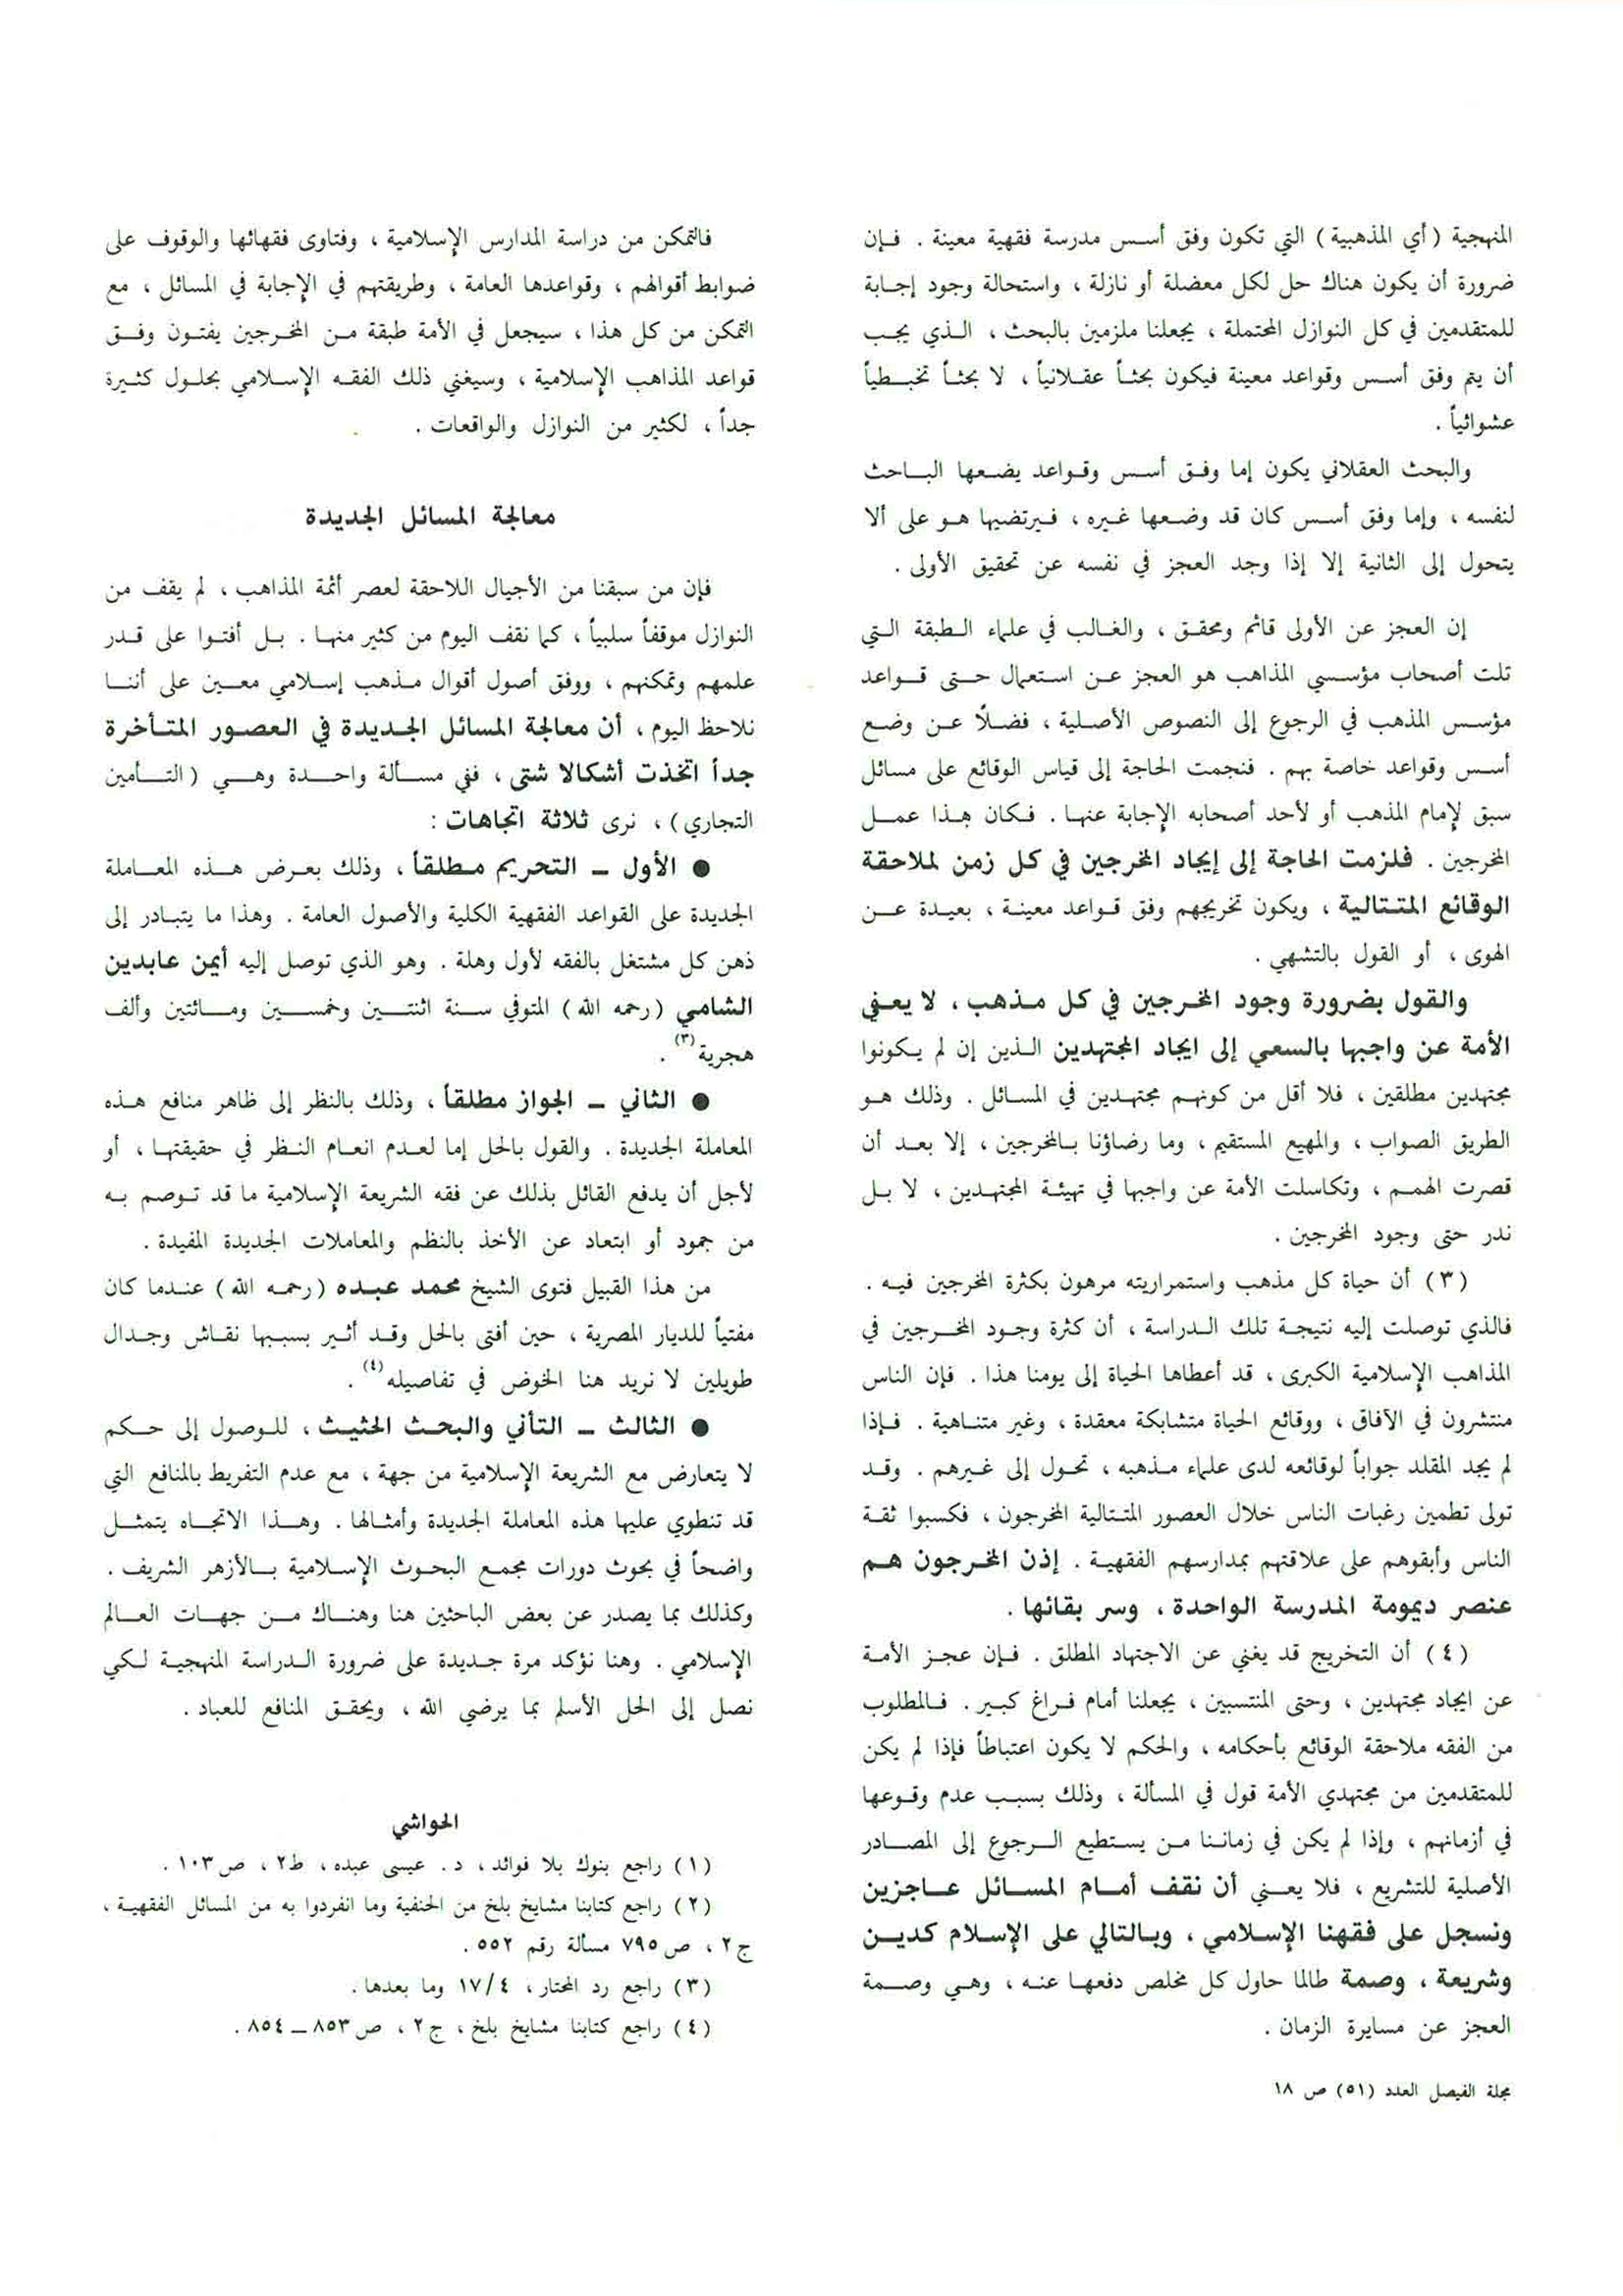 المنهجية (أي المذهبية) التي تكون وفق أسس مدرسة فقهية معينة . فإن
ضرورة أن يكون هناك حل لكل معضلة أو نازلة ، واستحالة وجود إجابة
للمتقدمين في كل النوازل المحتملة ، يجعلنا ملزمين بالبحث ، الذي يجب
أن يتم وفق أسس وقواعد معينة فيكون بحثاً عقلانياً ، لا بحثاً تخبطياً
عشوائياً .
والبحث العقلاني يكون إما وفق أسس وقواعد يضعها الباحث
لنفسه ، وإما وفق أسس كان قد وضعها غيره ، فيرتضيها هو على ألا
يتحول إلى الثانية إلا إذا وجد العجز في نفسه عن تحقيق الأولى .
إن العجز عن الأولى قائم ومحقق ، والغالب في علماء الطبقة التي
تلت أصحاب مؤسسي المذاهب هو العجز عن استعمال حتى قواعد
مؤسس المذهب في الرجوع إلى النصوص الأصلية ، فضلاً عن وضع
أسس وقواعد خاصة بهم . فنجمت الحاجة إلى قياس الوقائع على مسائل
سبق لإمام المذهب أو لأحد أصحابه الإجابة عنها . فكان هذا عمل
المخرجين . فلزمت الحاجة إلى إيجاد المخرجين في كل زمن لملاحقة
الوقائع المتتالية ، ويكون تخريجهم وفق قواعد معينة ، بعيدة عن
الهوى ، أو القول بالتشهي .
والقول بضرورة وجود المخرجين في كل مذهب ، لا يعفي
الأمة عن واجبها بالسعي إلى ايجاد المجتهدين الذين إن لم يكونوا
مجتهدين مطلقين ، فلا أقل من كونهم مجتهدين في المسائل . وذلك هو
الطريق الصواب ، والمهيع المستقيم ، وما رضاؤنا بالمخرجين ، إلا بعد أن
قصرت الهمم ، وتكاسلت الأمة عن واجبها في تهيئة المجتهدين ، لا بل
ندر حتى وجود المخرجين .
(٣) أن حياة كل مذهب واستمراريته مرهون بكثرة المخرجين فيه .
فالذي توصلت إليه نتيجة تلك الدراسة ، أن كثرة وجود المخرجين في
المذاهب الإسلامية الكبرى ، قد أعطاها الحياة إلى يومنا هذا . فإن الناس
منتشرون في الآفاق ، ووقائع الحياة متشابكة معقدة ، وغير متناهية . فإذا
لم يجد المقلد جواباً لوقائعه لدى علماء مذهبه ، تحول إلى غيرهم . وقد
تولى تطمين رغبات الناس خلال العصور المتتالية المخرجون ، فكسبوا ثقة
الناس وأبقوهم على علاقتهم بمدارسهم الفقهية . إذن المخرجون هم
عنصر ديمومة المدرسة الواحدة ، وسر بقائها .
(٤) أن التخريج قد يغني عن الاجتهاد المطلق . فإن عجز الأمة
عن ايجاد مجتهدين ، وحتى المنتسبين ، يجعلنا أمام فراغ كبير . فالمطلوب
من الفقه ملاحقة الوقائع بأحكامه ، والحكم لا يكون اعتباطاً فإذا لم يكن
للمتقدمين من مجتهدي الأمة قول في المسألة ، وذلك بسبب عدم وقوعها
في أزمانهم ، وإذا لم يكن في زماننا من يستطيع الرجوع إلى المصادر
الأصلية للتشريع ، فلا يعني أن نقف أمام المسائل عاجزين
ونسجل على فقهنا الإسلامي ، وبالتالي على الإسلام كدين
وشريعة ، وصمة طالما حاول كل مخلص دفعها عنه ، وهي وصمة
العجز عن مسايرة الزمان .
فالتمكن من دراسة المدارس الإسلامية ، وفتاوى فقهائها والوقوف على
ضوابط أقوالهم ، وقواعدها العامة ، وطريقتهم في الإجابة في المسائل ، مع
التمكن من كل هذا ، سيجعل في الأمة طبقة من المخرجين يفتون وفق
قواعد المذاهب الإسلامية ، وسيغني ذلك الفقه الإسلامي بحلول كثيرة
جداً ، لكثير من النوازل والواقعات .
معالجة المسائل الجديدة
فإن من سبقنا من الأجيال اللاحقة لعصر أئمة المذاهب ، لم يقف من
النوازل موقفاً سلبياً ، كما نقف اليوم من كثير منها . بل أفتوا على قدر
علمهم وتمكنهم ، ووفق أصول أقوال مذهب إسلامي معين على أننا
نلاحظ اليوم ، أن معالجة المسائل الجديدة في العصور المتأخرة
جداً اتخذت أشكالا شتى ، ففي مسألة واحدة وهي (التأمين
التجاري) ، نرى ثلاثة اتجاهات :
● الأول – التحريم مطلقاً ، وذلك بعرض هذه المعاملة
الجديدة على القواعد الفقهية الكلية والأصول العامة . وهذا ما يتبادر إلى
ذهن كل مشتغل بالفقه لأول وهلة . وهو الذي توصل إليه أيمن عابدين
الشامي (رحمه الله) المتوفي سنة اثنتين وخمسين ومائتين وألف
هجرية(٣) .
● الثاني – الجواز مطلقاً ، وذلك بالنظر إلى ظاهر منافع هذه
المعاملة الجديدة . والقول بالحل إما لعدم انعام النظر في حقيقتها ، أو
لأجل أن يدفع القائل بذلك عن فقه الشريعة الإسلامية ما قد توصم به
من جمود أو ابتعاد عن الأخذ بالنظم والمعاملات الجديدة المفيدة .
من هذا القبيل فتوى الشيخ محمد عبده (رحمه الله) عندما كان
مفتياً للديار المصرية ، حين أفتى بالحل وقد أثير بسببها نقاش وجدال
طويلين لا نريد هنا الخوض في تفاصيله(٤) .
● الثالث – التأني والبحث الحثيث ، للوصول إلى حكم
لا يتعارض مع الشريعة الإسلامية من جهة ، مع عدم التفريط بالمنافع التي
قد تنطوي عليها هذه المعاملة الجديدة وأمثالها . وهذا الاتجاه يتمثل
واضحاً في بحوث دورات مجمع البحوث الإسلامية بالأزهر الشريف .
وكذلك بما يصدر عن بعض الباحثين هنا وهناك من جهات العالم
الإسلامي . وهنا نؤكد مرة جديدة على ضرورة الدراسة المنهجية لكي
نصل إلى الحل الأسلم بما يرضي الله ، ويحقق المنافع للعباد .
الحواشي
(١) راجع بنوك بلا فوائد ، د. عيسى عبده ، ط٢ ، ص١٠٣ .
(٢) راجع كتابنا مشايخ بلخ من الحنفية وما انفردوا به من المسائل الفقهية ،
ج٢ ، ص٧٩٥ مسألة رقم ٥٥٢ .
(٣) راجع رد المحتار ، ١٧/٤ وما بعدها .
(٤) راجع كتابنا مشايخ بلخ ، ج٢ ، ص٨٥٣ – ٨٥٤ .
مجلة الفيصل العدد (٥١) ص ١٨